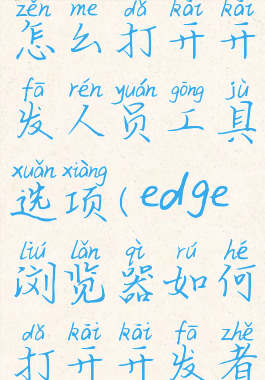 zěn me dǎ kāi kāi
怎么打开开
fā rén yuán gōng jù
发人员工具
xuǎn xiàng
选项(edge
liú lǎn qì rú hé
浏览器如何
dǎ kāi kāi fā zhě
打开开发者